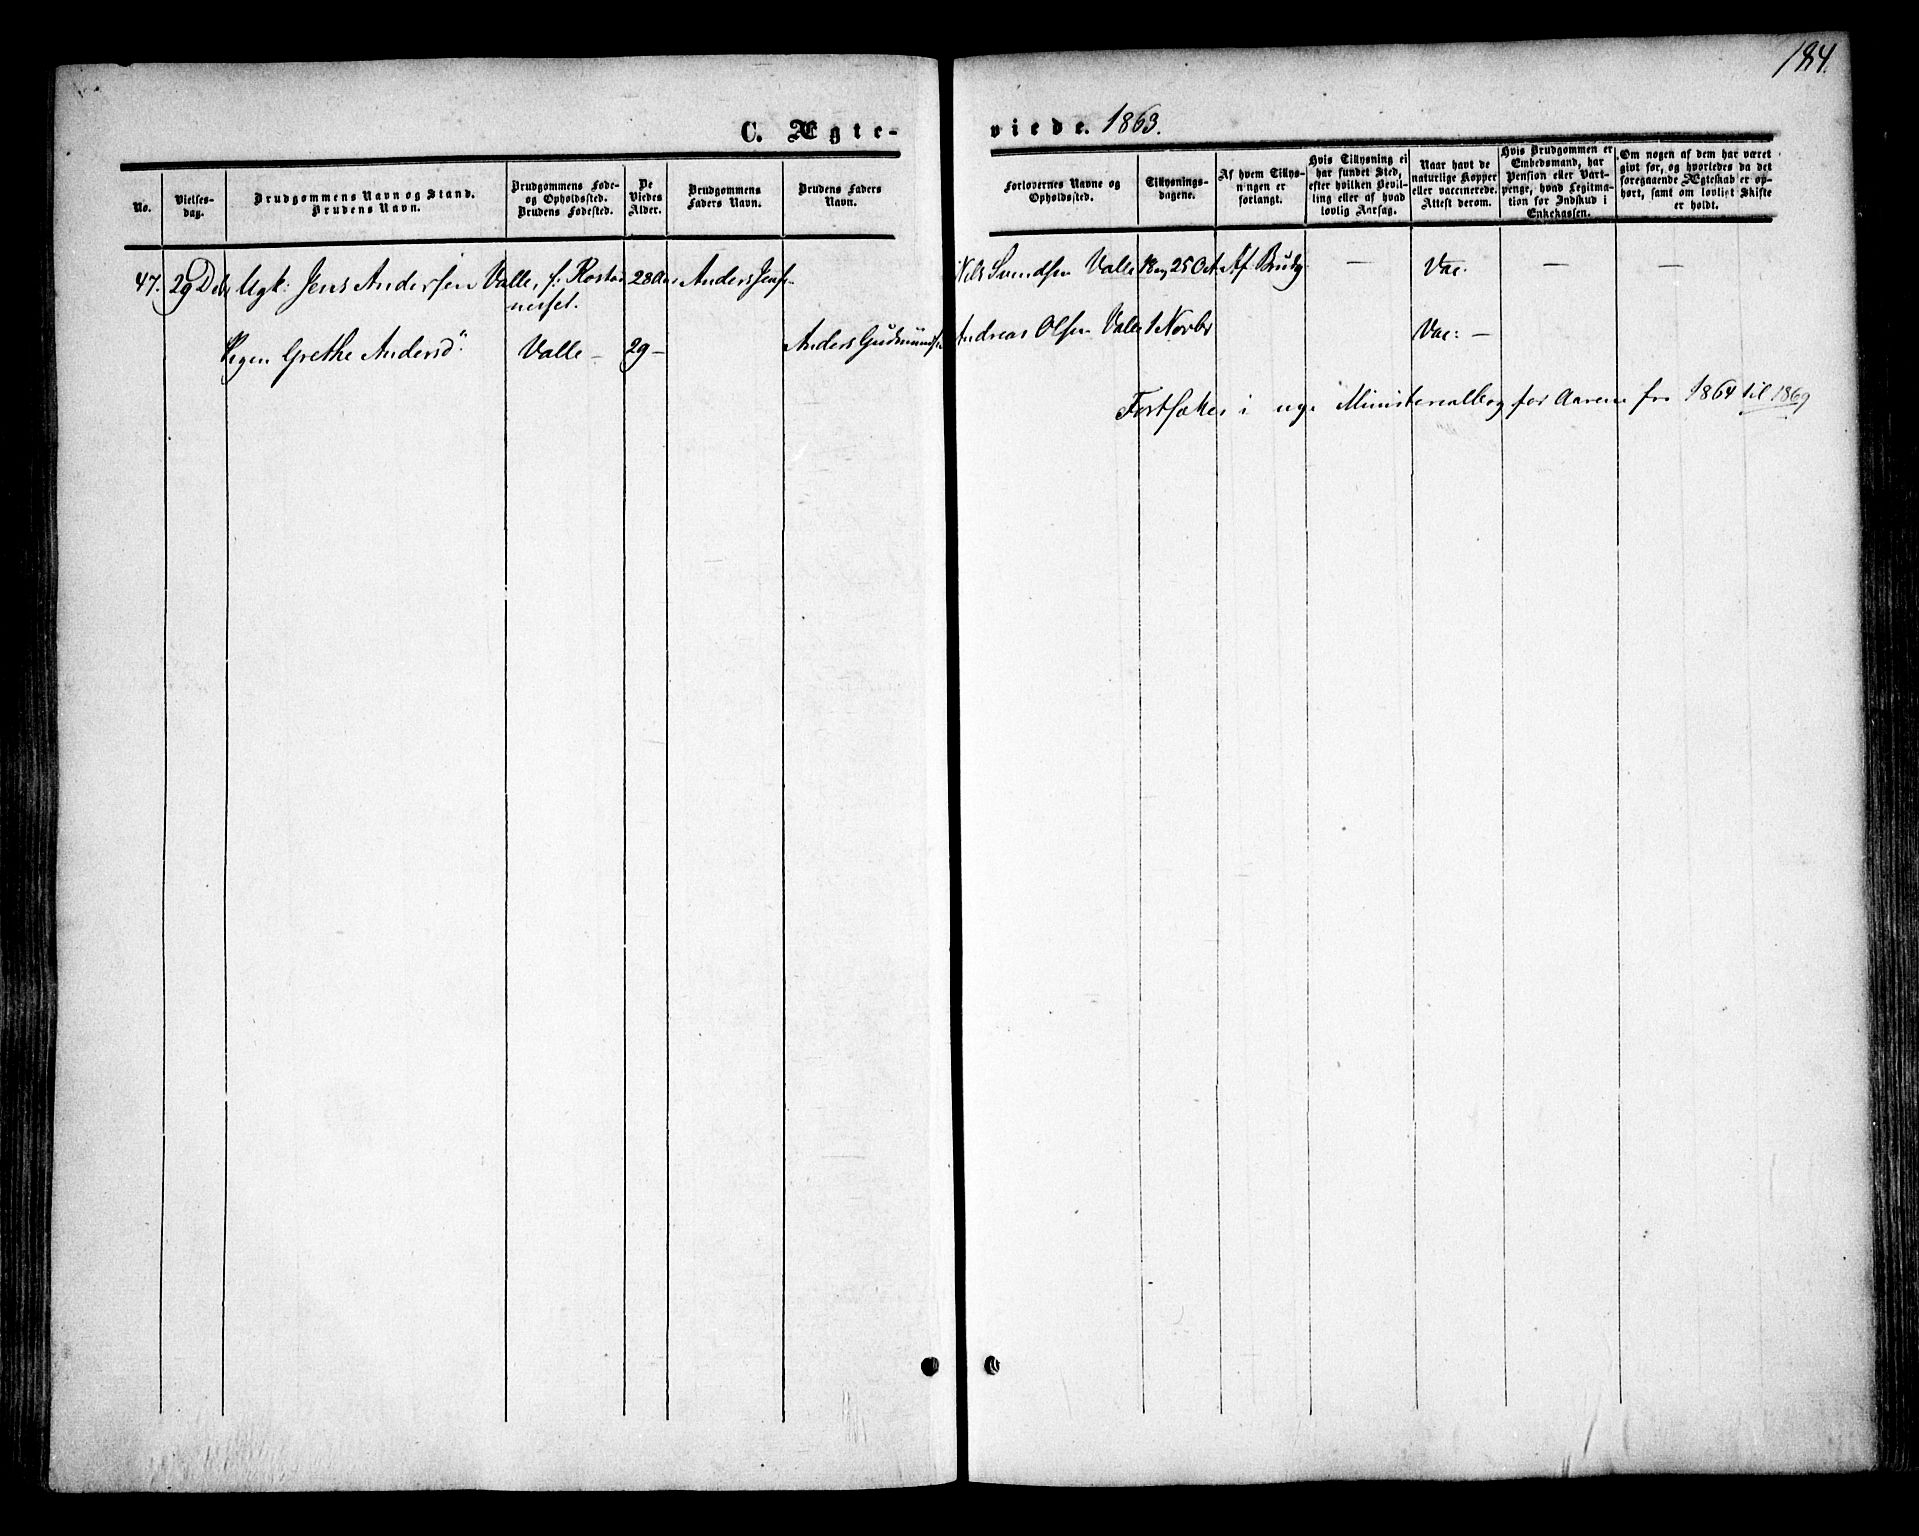 184.
C. Ægte-
viede. 1863.
No.
Vielses-
dag.
Brudgommens Navn og Stand.
Brudens Navn.
Brudgommens Føde-
og Opholdssted.
Brudens Fødested.
De
Viedes
Alder.
Brudgommens
Faders Navn.
Brudens Faders
Navn.
Forlovernes Navne og
Opholdssted.
Tillysnings-
dagene.
Af hvem Tillys-
ningen er
forlangt.
Hvis Tillysning ei
har fundet Sted,
efter hvilken Bevil-
ling eller af hvad
lovlig Aarsag.
Naar havt de
naturlige Kopper
eller vaccinerede.
Attest derom.
Hvis Brudgommen er
Embedsmand, har
Pension eller Vart-
penge, hvad Legitma-
tion for Indskud i
Enkekassen.
Om nogen af dem har været
givt før, og hvorledes da det
foregaaende Ægteskab er op-
hørt, samt om lovligt Skifte
er holdt.
47. 29 De Ugk: Jens Andersen Valle, f: 28 Aar Anders Jens- Nils Svendsen Valle 18 og 25 Oct Af Brudg — Vac. — —
Pigen Grethe Andersd: Valle — 29 — Anders Gudmunds Andreas Olsen Valle 1 Novbr Vac: —
Fortsættes i nye Ministerialbog for Aarene fra 1864 til 1869